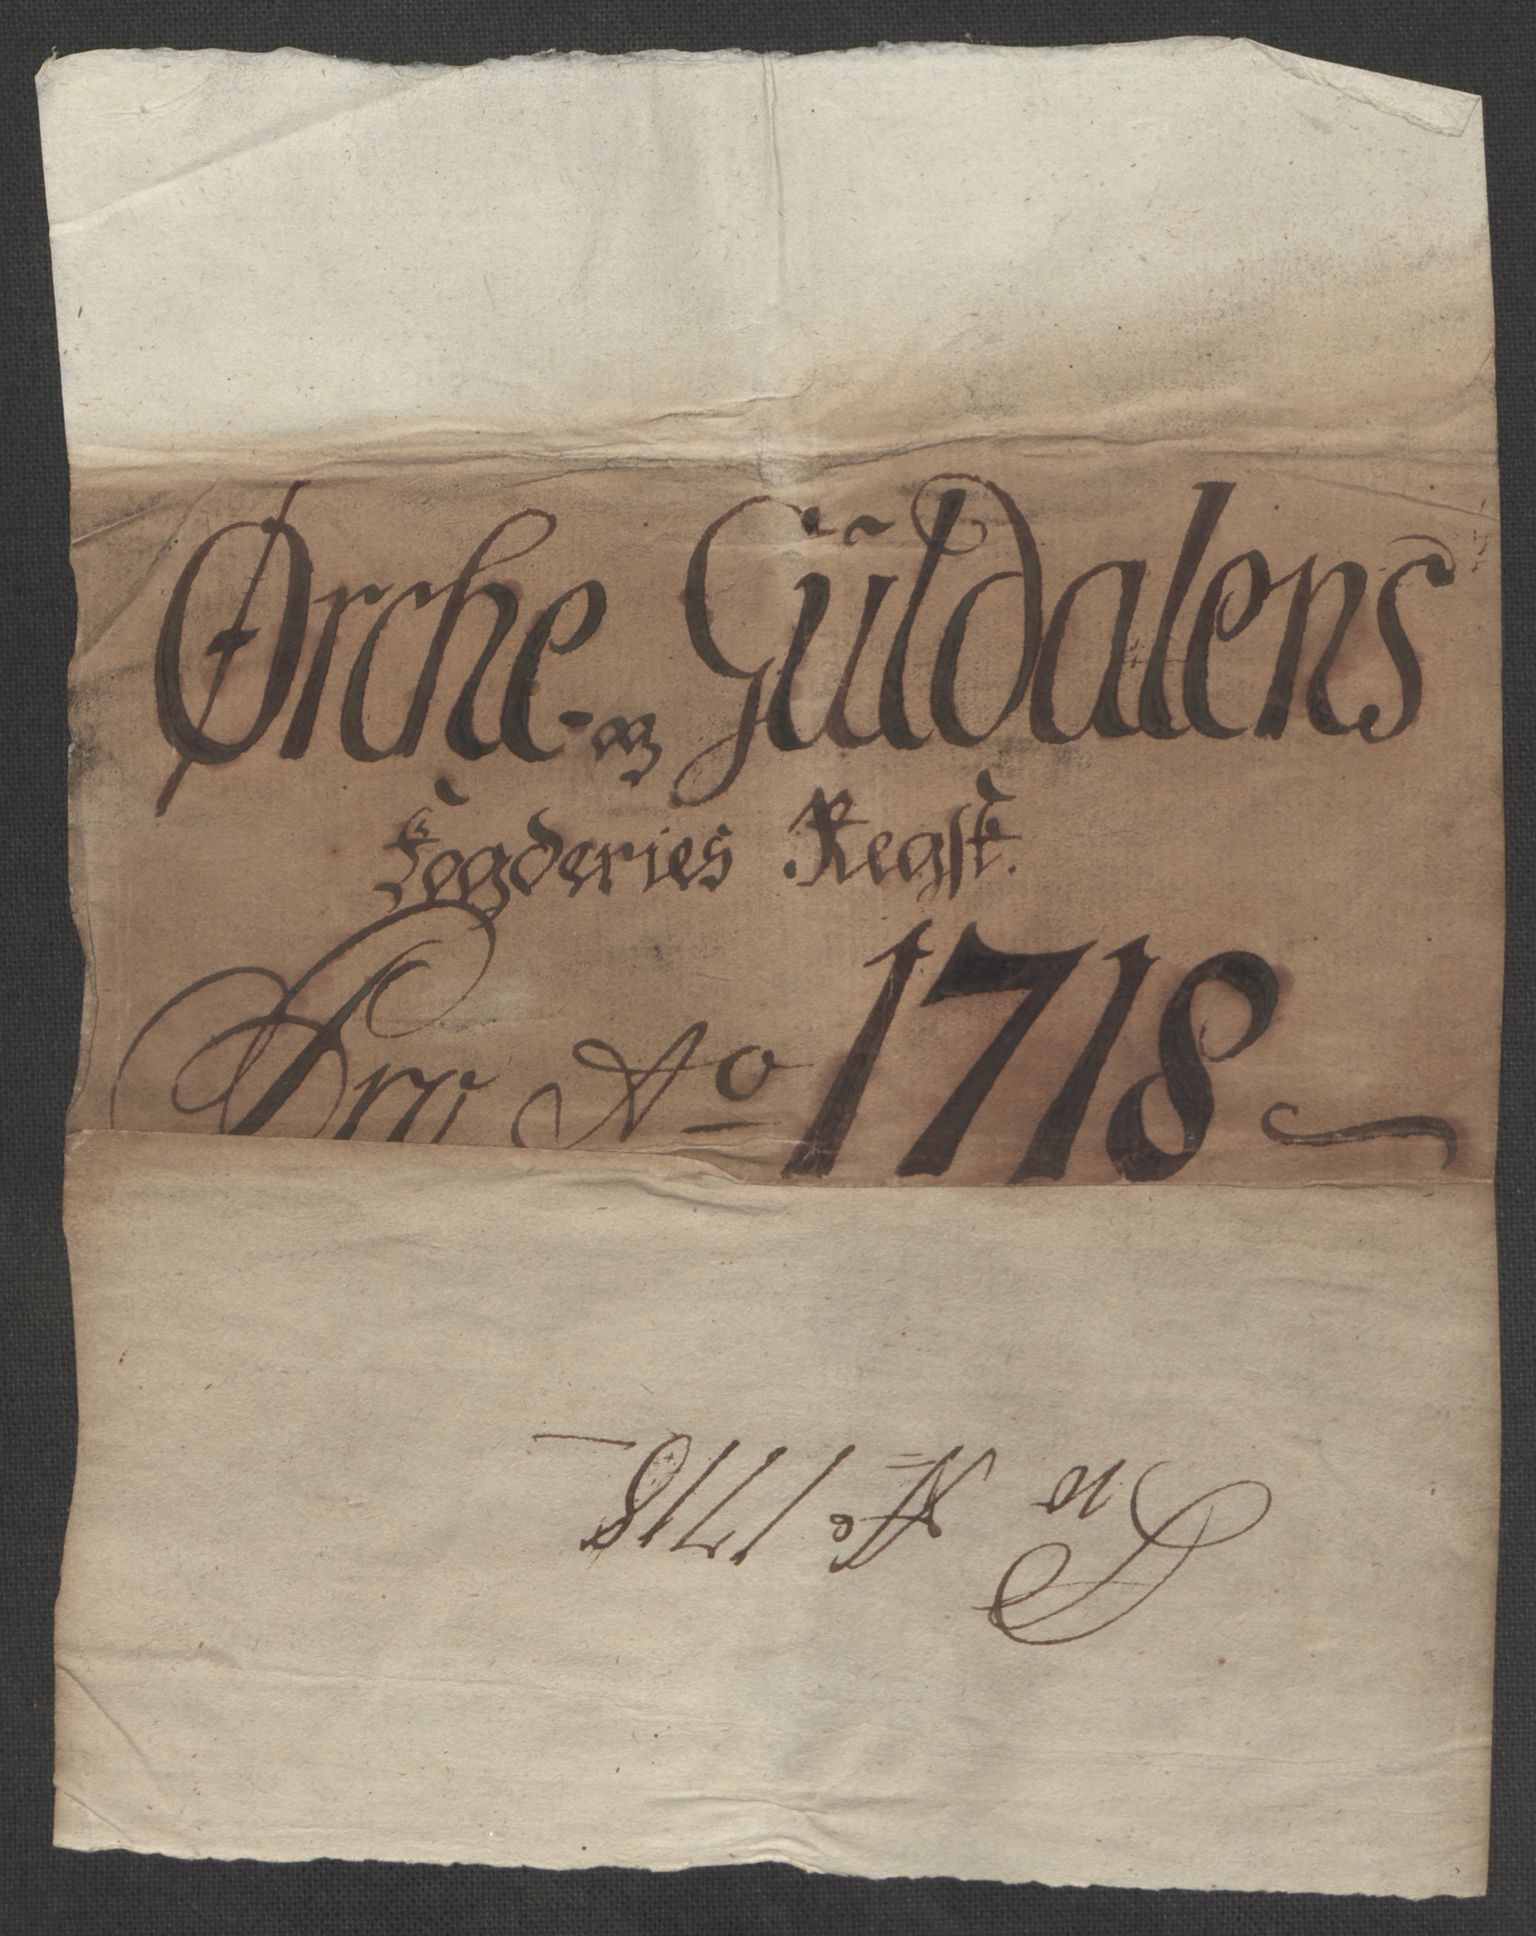 Ørche- og Gŭldalens
Fogderies Regsk.
Pro Ao 1718
Pro Ao 1718